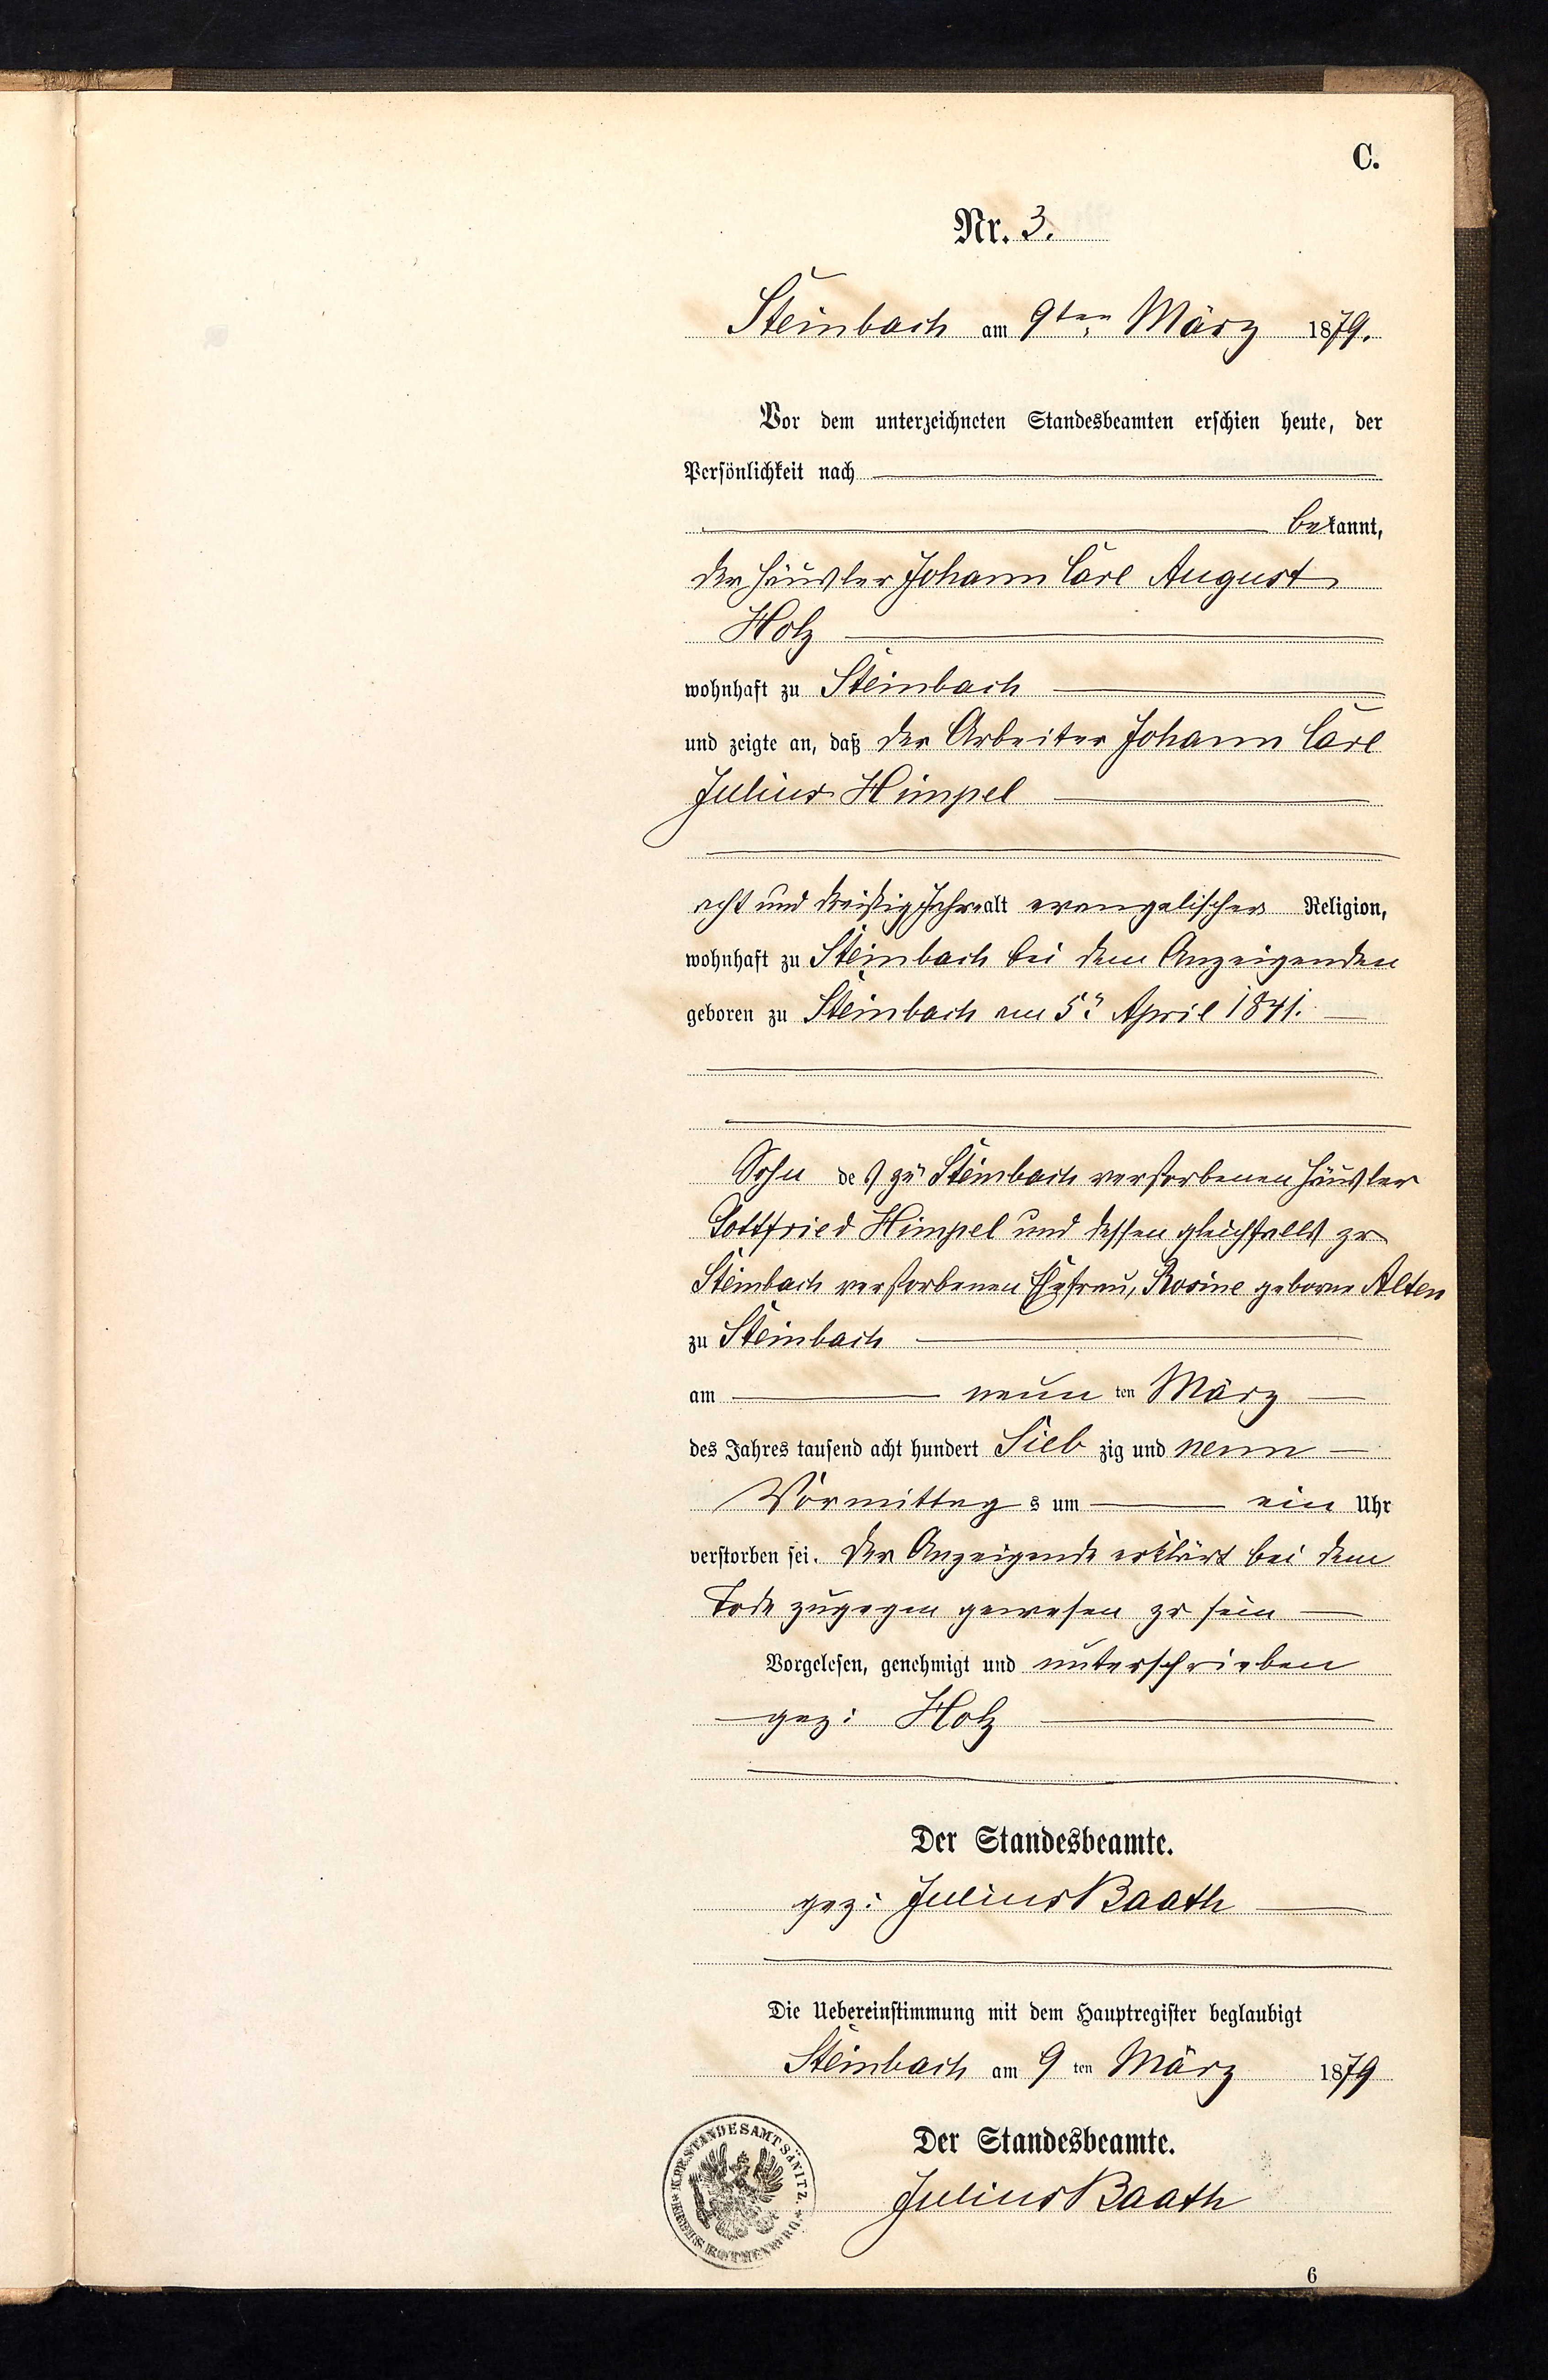 C.
Nr. 3.
Steinbach am 9ten März 1879.
Vor dem unterzeichneten Standesbeamten erschien heute, der
Persönlichkeit nach
bekannt,
der Häusler Johann Carl August
Holz
wohnhaft zu Steinbach
und zeigte an, daß der Arbeiter Johann Carl
Julius Himpel
acht und dreißig Jahre alt evangelischer Religion,
wohnhaft zu Steinbach bei dem Anzeigenden
geboren zu Steinbach am 5. April 1841.
Sohn des zu Steinbach verstorbenen Häusler
Gottfried Himpel und dessen gleichfalls zu
Steinbach verstorbenen Ehefrau, Rosine geborne Alten
zu Steinbach
am neun ten März
des Jahres tausend acht hundert Sieb zig und neun
Vormittag s um ein Uhr
verstorben sei. Der Anzeigende erklärt bei dem
Tode zugegen gewesen zu sein
Vorgelesen, genehmigt und unterschrieben
gez: Holz
Der Standesbeamte.
gez: Julius Baath
Die Uebereinstimmung mit dem Hauptregister beglaubigt
Steinbach am 9 ten März 1879
Der Standesbeamte.
Julius Baath
K. PR. STANDESAMT SÄNITZ. KREIS ROTHENBURG
6